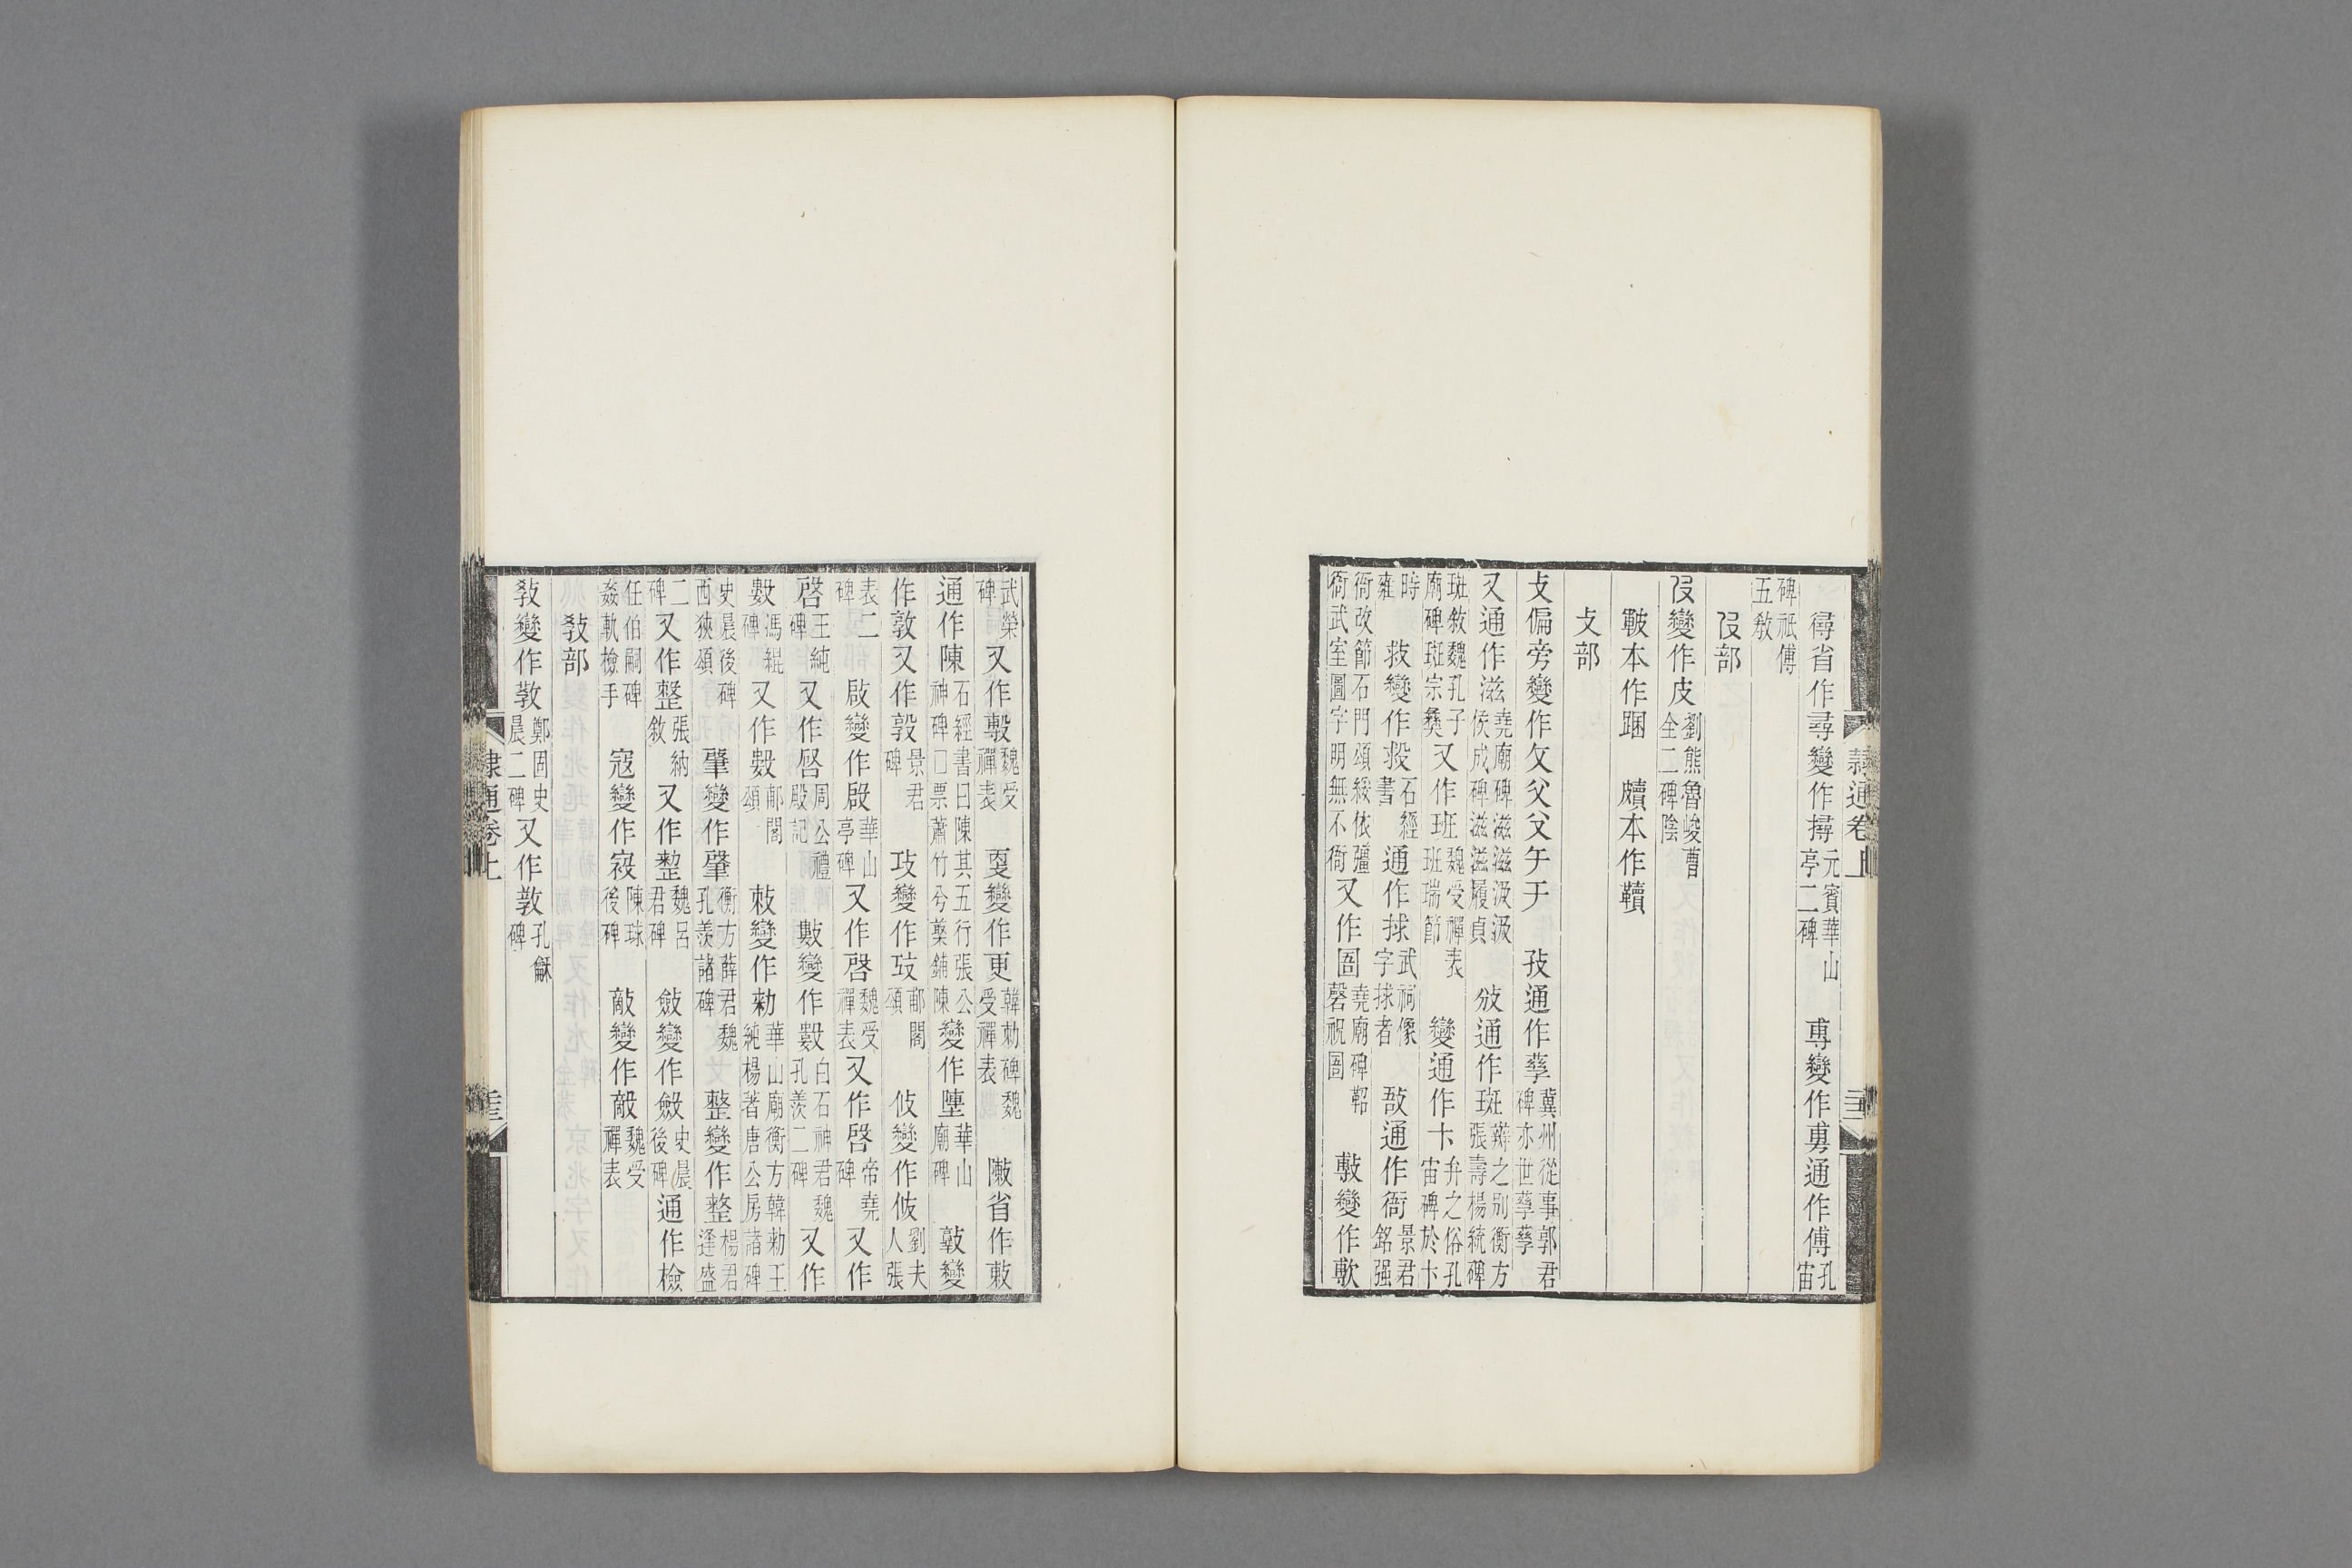 㝷省作尋變作撏元賓華山亭二碑　尃變作旉通作傅孔宙
碑祇傅五教
𡰻部
𡰻變作皮劉熊魯峻曹全二碑陰
皸本作踞　皾本作韥
攴部
攴偏旁變作攵父父𠂉于　孜通作孳冀州從事郭君碑亦世孳孳
又通作滋堯廟碑滋滋汲汲侯成碑滋滋履貞　攽通作斑辯之別衡方張壽楊統碑
斑敘魏孔子廟碑斑宗彝又作班魏受禪表班瑞節　變通作卞弁之俗孔宙碑於卞
時雍　救變作㨋石經書通作捄武祠像字捄者　敔通作衙景君銘强
衙改節石門頌綏依彊衙武室圖字明無不衙又作圄堯廟碑鞀磬祝圄　𣀳變作歒
隸通卷上
武榮碑又作𣀳魏受禪表　㪅變作更韓勑碑魏受禪表　敶省作敕
通作陳石經書曰陳其五行張公神碑□票蕭竹兮藥鋪陳變作塦華山廟碑　敦變
作敦又作敦景君碑　攻變作攷郙閣頌　攸變作攸劉夫人張
表二碑　啟變作啟華山亭碑又作啓魏受禪表又作啓帝堯碑　又作
啓王純碑又作啓周公禮殿記　數變作數白石神君魏孔羨二碑　又作
數馮緄碑又作數郙閣頌　敕變作勑華山廟衡方韓勑王純楊著唐公房諸碑
史晨後碑西狹頌　肈變作肇衡方薛君魏孔羨諸碑　整變作整楊君逢盛
二碑又作整張納敘又作整魏呂君碑　斂變作斂史晨後碑通作檢
任伯嗣碑姦軌檢手　寇變作寇陳球後碑　敵變作敵魏受禪表
敎部
敎變作教鄭固史晨二碑又作教孔龢碑
隸通卷上